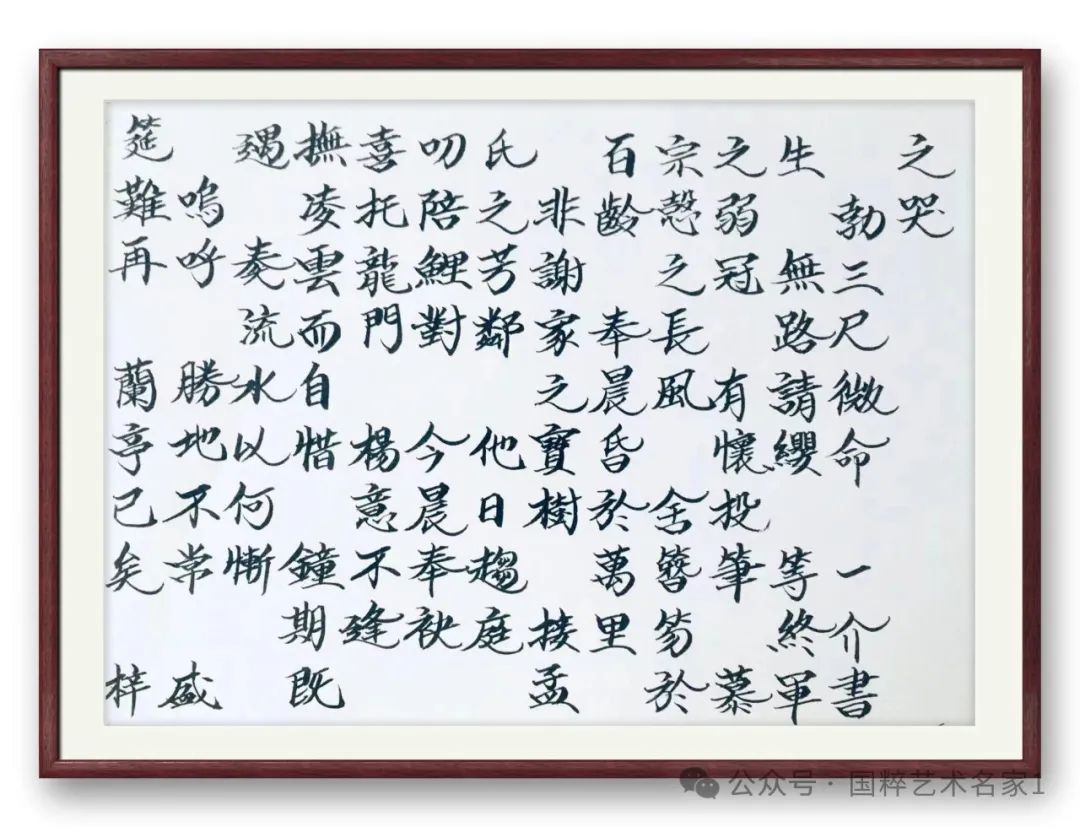 之哭
勃三尺微命 一介書
生 無路請纓 等終軍
之弱冠 有懷投筆 慕
宗愨之長風 舍簪笏於
百齡 奉晨昏於萬里
非謝家之寶樹 接孟
氏之芳鄰 他日趨庭
叨陪鯉對 今晨奉袂
喜托龍門 楊意不逢
撫凌雲而自惜 鐘期既
遇 奏流水以何慚
嗚呼 勝地不常 盛
筵難再 蘭亭已矣 梓
公众号 · 国粹艺术名家1